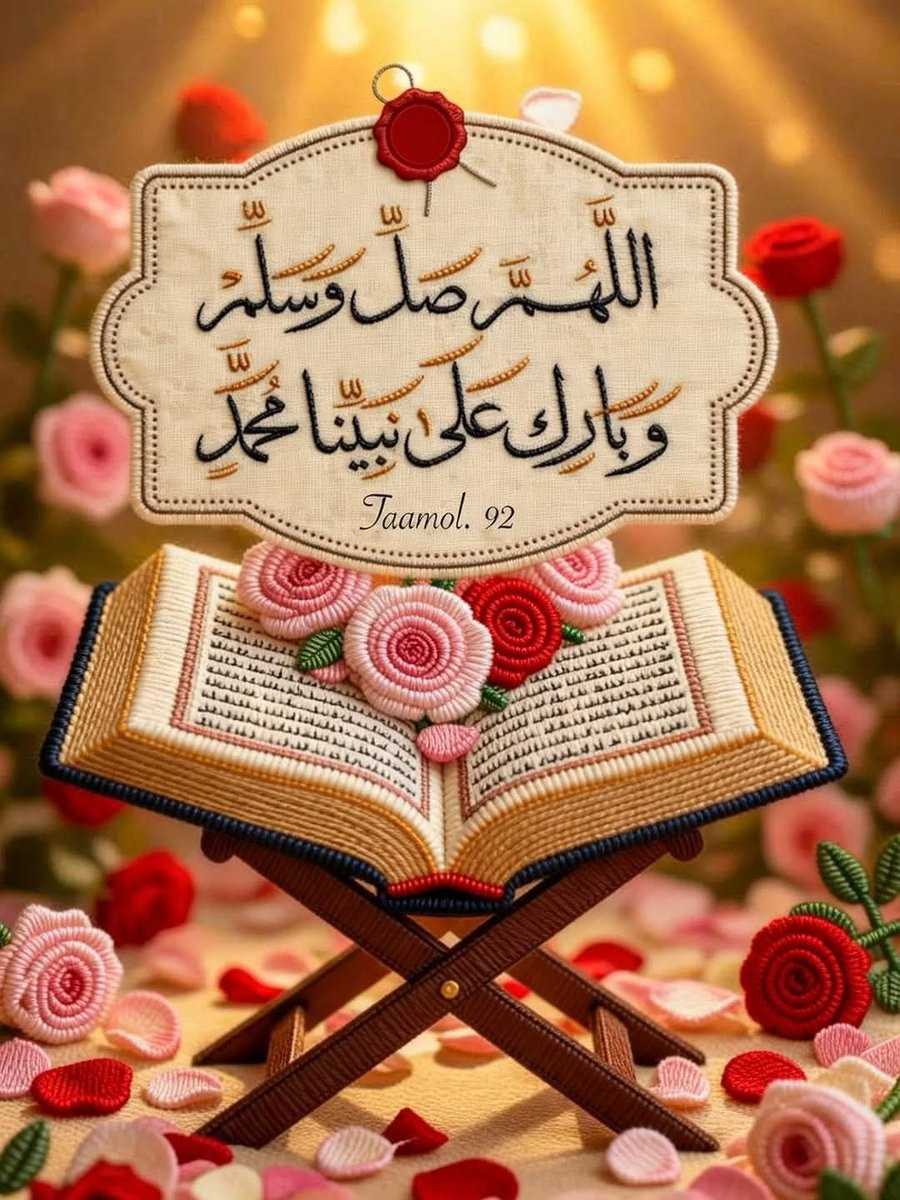 اللَّهُمَّ صَلِّ وَسَلِّمْ
وَبَارِك عَلَى نَبِيِّنَا مُحَمَّدٍ
Taamol. 92